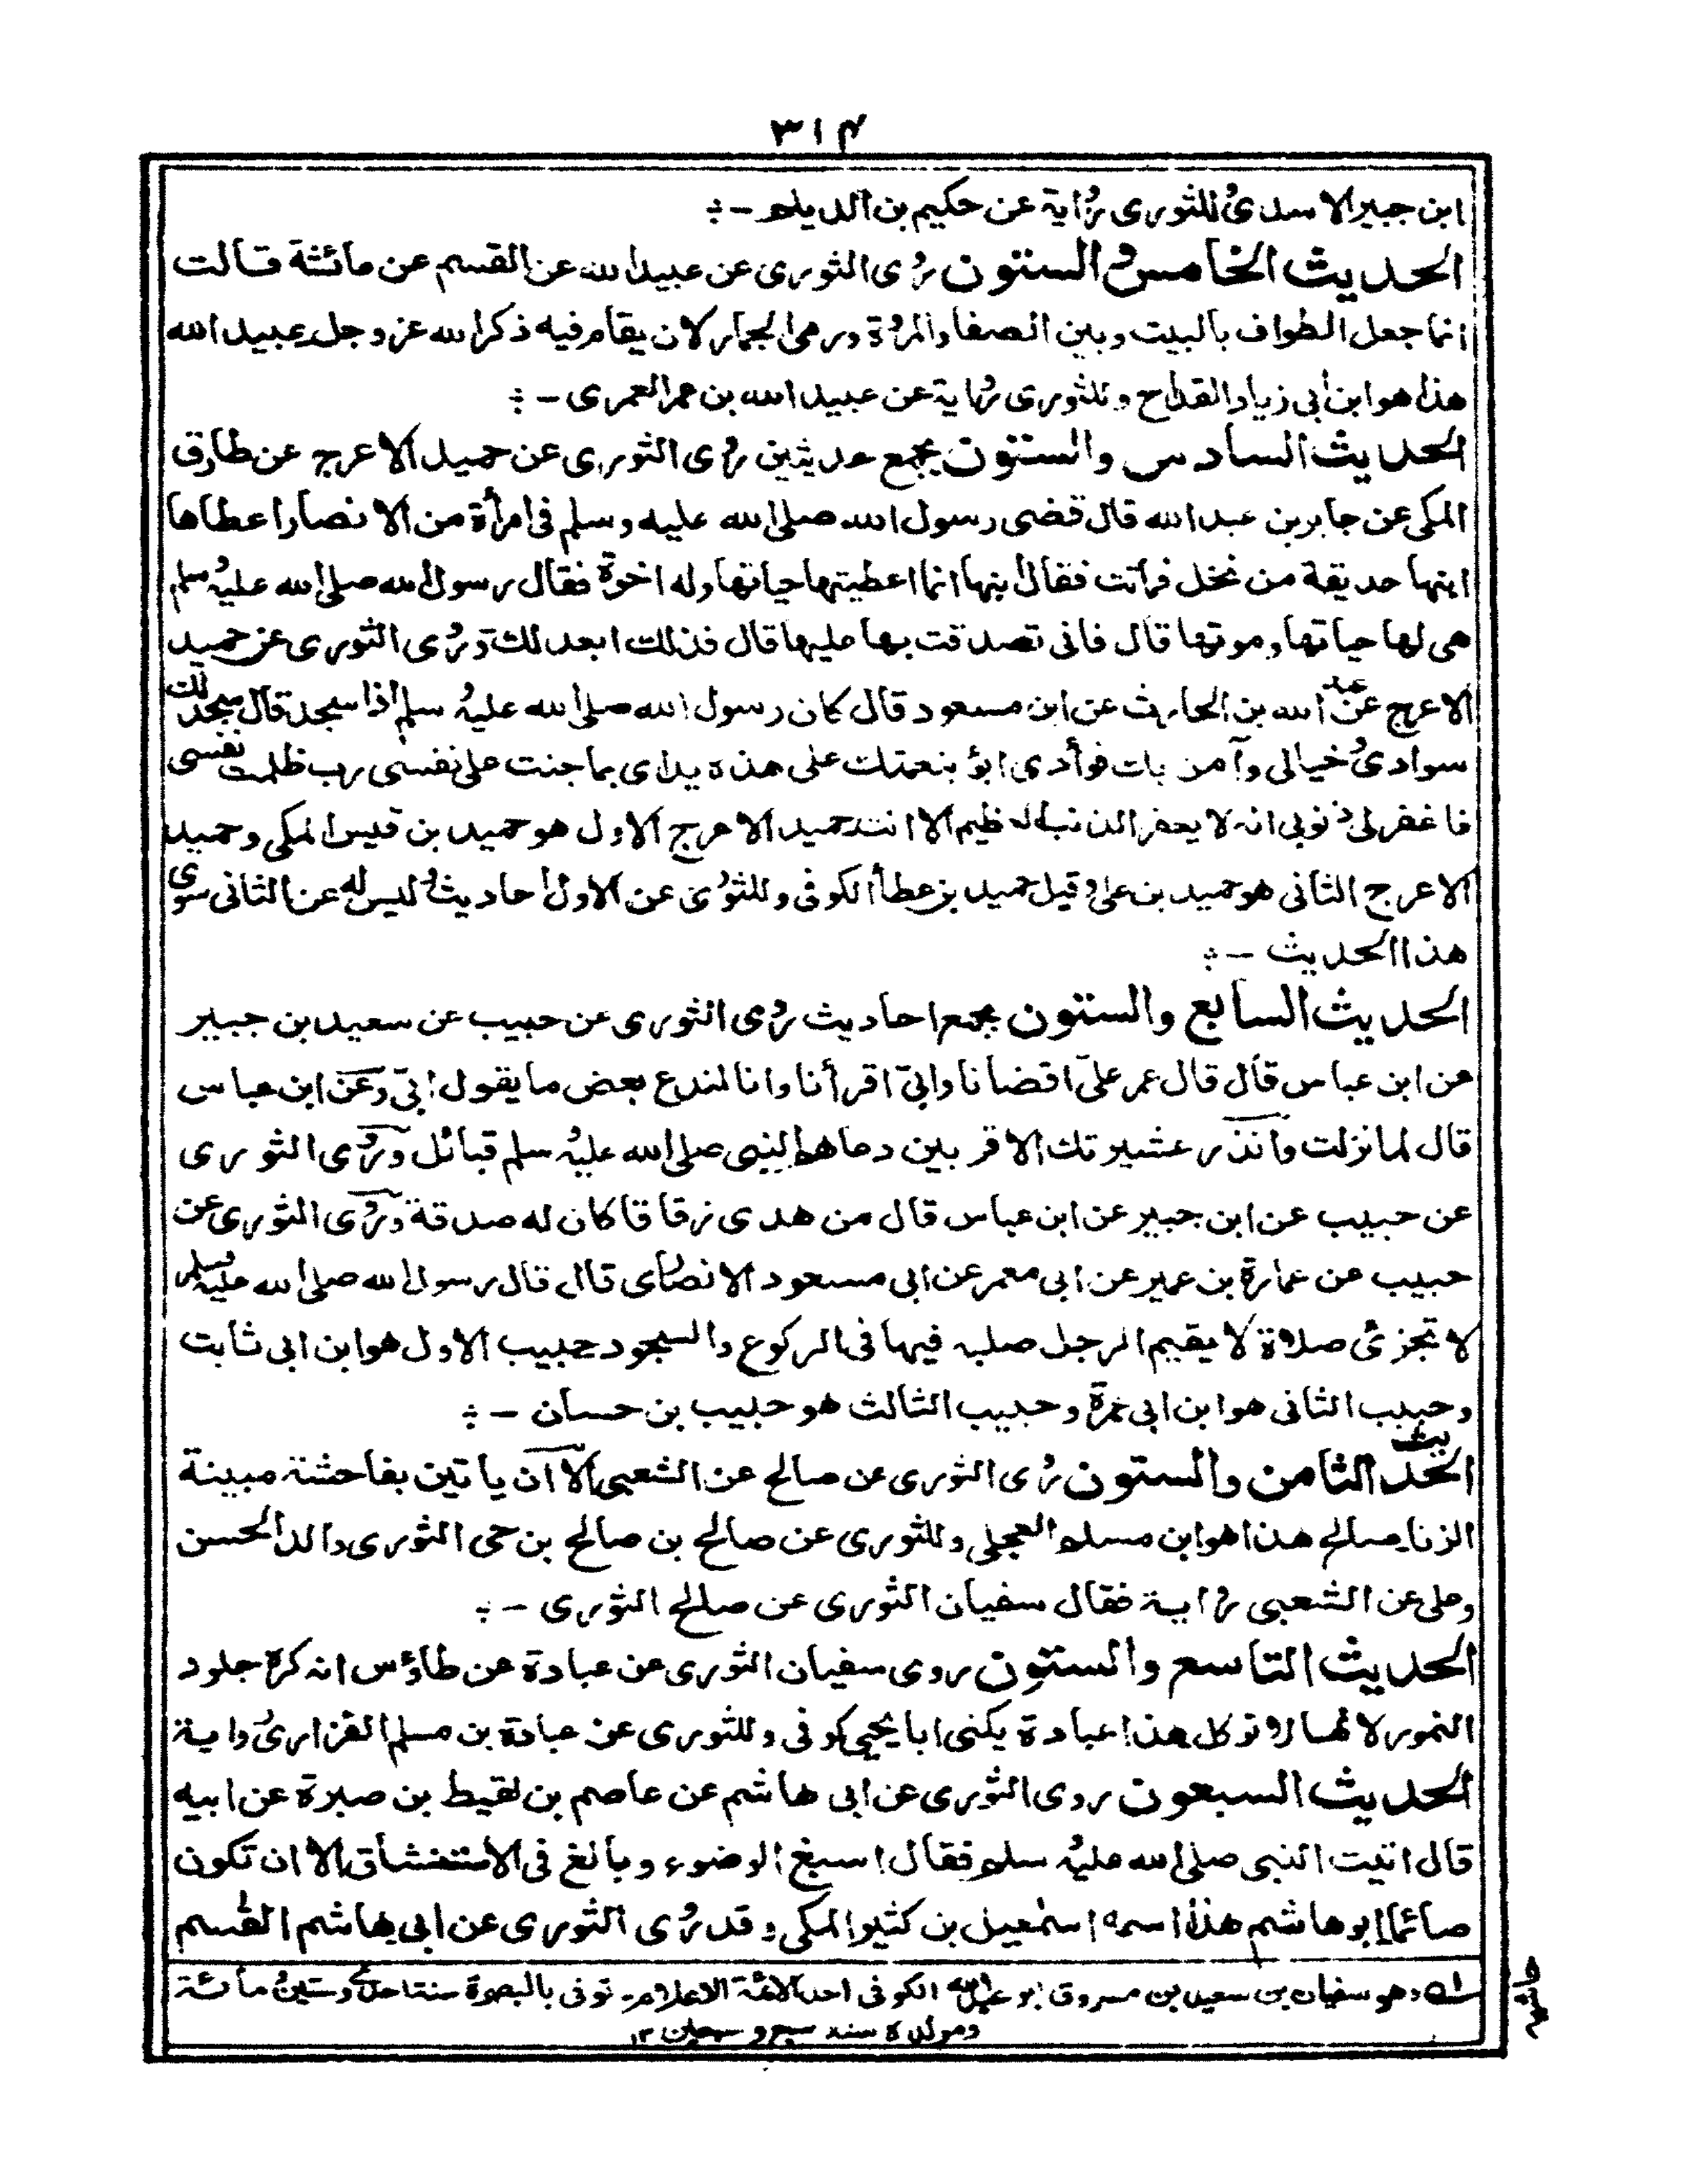 ٣١٤
ابن جبير الاسدى وللثورى رواية عن حكيم بن الديلم -:
الحديث الخامس والستون روى الثورى عن عبيد الله عن القسم عن عائشة قالت
انما جعل الطواف بالبيت وبين الصفا والمروة ورمى الجمار لان يقام فيه ذكر الله عز وجل عبيد الله
هذا هو ابن أبى زياد القداح وللثورى رواية عن عبيد الله بن عمر العمرى -:
الحديث السادس والستون يجمع حديثين روى الثورى عن حميد الاعرج عن طارق
المكى عن جابر بن عبد الله قال قضى رسول الله صلى الله عليه وسلم فى امرأة من الانصار اعطاها
ابنها حديقة من نخل فماتت فقال ابنها انما اعطيتها حياتها وله اخوة فقال رسول الله صلى الله عليه وسلم
هى لها حياتها وموتها قال فانى تصدقت بها عليها قال فذلك ابعد لك وروى الثورى عن حميد
الاعرج عن عبد الله بن الحارث عن ابن مسعود قال كان رسول الله صلى الله عليه وسلم اذا سجد قال سجد لك
سوادى وخيالى وآمن بك فوأدى ابؤ بنعمتك على هذه يداى بما جنت على نفسى رب ظلمت نفسى
فاغفر لى ذنوبى انه لا يغفر الذنب العظيم الا انت حميد الاعرج الاول هو حميد بن قيس المكى وحميد
الاعرج الثانى هو حميد بن على وقيل حميد بن عطأ الكوفى وللثورى عن الاول احاديث وليس له عن الثانى سوى
هذا الحديث -:
الحديث السابع والستون يجمع احاديث روى الثورى عن حبيب عن سعيد بن جبير
عن ابن عباس قال قال عمر علىّ اقضانا وابىّ اقرأنا وانا لندع بعض ما يقول ابىّ وعن ابن عباس
قال لما نزلت وانذر عشيرتك الاقربين دعاهم النبى صلى الله عليه وسلم قبائل وروى الثورى
عن حبيب عن ابن جبير عن ابن عباس قال من هدى زقاقا كان له صدقة وروى الثورى عن
حبيب عن عمارة بن عمير عن ابى معمر عن ابى مسعود الانصارى قال قال رسول الله صلى الله عليه وسلم
لا تجزئ صلاة لا يقيم الرجل صلبه فيها فى الركوع والسجود حبيب الاول هو ابن ابى ثابت
وحبيب الثانى هو ابن ابى عمرة وحبيب الثالث هو حبيب بن حسان -:
الحديث الثامن والستون روى الثورى عن صالح عن الشعبى الا ان ياتين بفاحشة مبينة
الزنا صالح هذا هو ابن مسلم العجلى وللثورى عن صالح بن صالح بن حى الثورى والد الحسن
وعلى عن الشعبى رواية فقال سفيان الثورى عن صالح الثورى -:
الحديث التاسع والستون روى سفيان الثورى عن عبادة عن طاؤس انه كره جلود
النمور لانها لا توكل هذا عبادة يكنى ابا يحيى كوفى وللثورى عن عبادة بن مسلم الفزارى رواية
الحديث السبعون روى الثورى عن ابى هاشم عن عاصم بن لقيط بن صبرة عن ابيه
قال اتيت النبى صلى الله عليه وسلم فقال اسبغ الوضوء وبالغ فى الاستنشاق الا ان تكون
صائما ابو هاشم هذا اسمه اسمعيل بن كثير المكى وقد روى الثورى عن ابى هاشم القسم
١ وهو سفيان بن سعيد بن مسروق ابو عبد الله الكوفى احد الائمة الاعلام توفى بالبصرة سنة احدى وستين ومائة
ومولده سنة سبع وسبعين ١٢